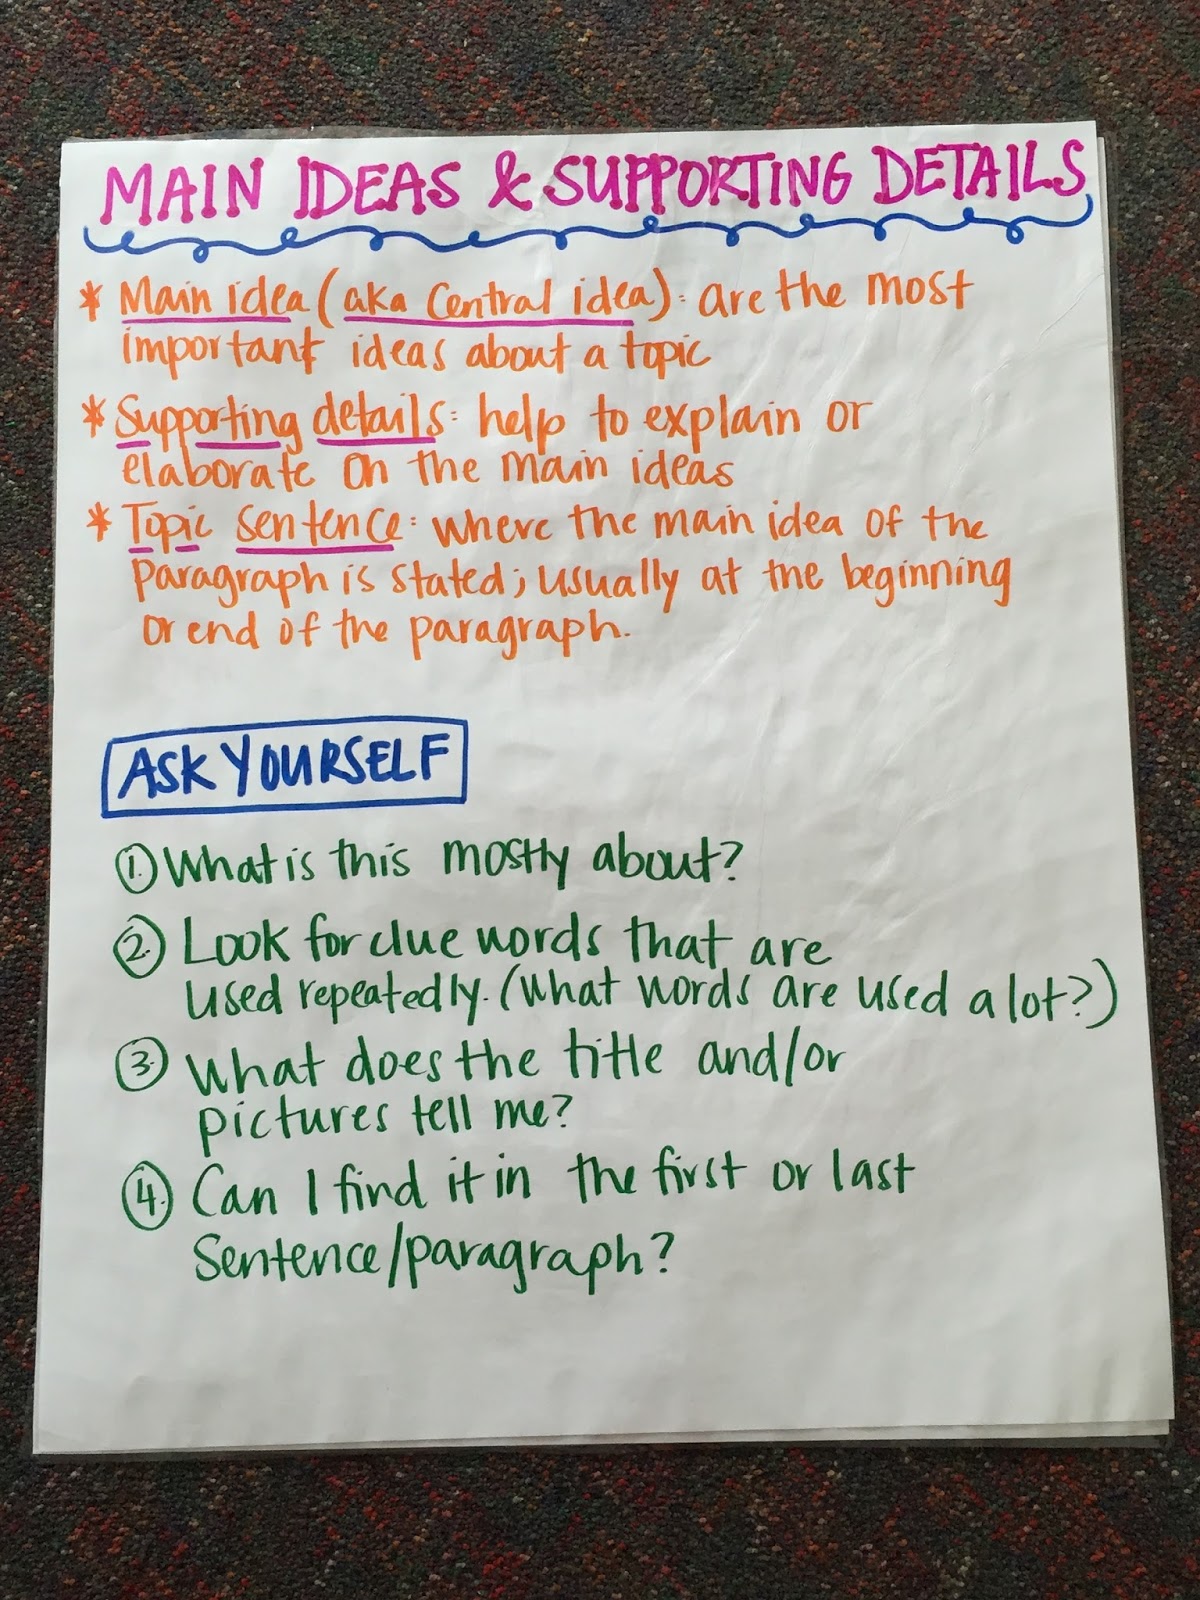 MAIN IDEAS & SUPPORTING DETAILS
* Main idea (aka Central idea): are the most
important ideas about a topic
* Supporting details: help to explain or
elaborate on the main ideas
* Topic sentence: where the main idea of the
paragraph is stated; usually at the beginning
or end of the paragraph.
ASK YOURSELF
1. What is this mostly about?
2. Look for clue words that are
used repeatedly. (What words are used a lot?)
3. What does the title and/or
pictures tell me?
4. Can I find it in the first or last
sentence/paragraph?